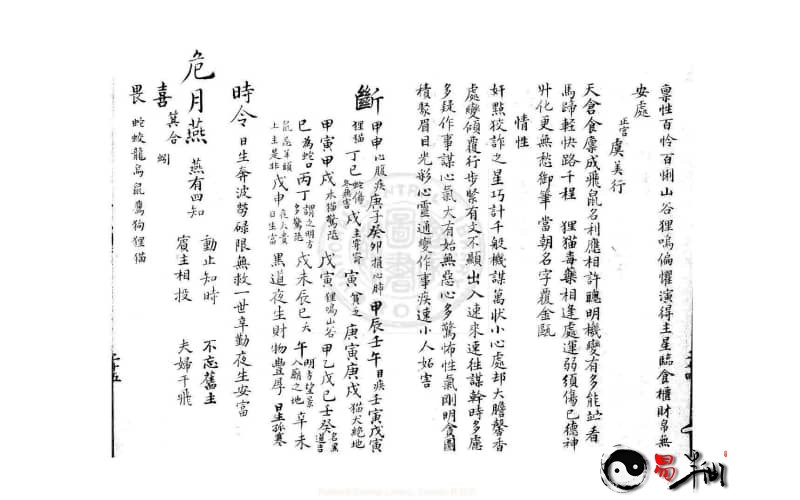 稟性百怜百悧山谷狸鳴偏懼演得主星臨食櫃財帛無
安處
正官 虞美行
天倉食廩成飛鼠名利應相許聰明機變有多能並看
馬蹄輕快路千程 狸猫毒藥相逢處運弱須傷己德神
升化更無愁御筆當朝名字覆金甌
情性
奸點狡詐之星巧計千般機謀萬狀小心處却大膽馨香
處變傾覆行步緊有文不顯出入速來速往謀幹時多慮
多疑作事謀心氣大有始無惡心多驚怖性氣剛明食圓
積聚眉目光彩心靈通變作事疾速小人妬害
斷 甲申心腹疾庚子癸卯損心肺甲辰壬午目疾壬寅戊寅
狸猫丁巳蛇傷冬無害戌主守窮寅貧乏庚寅庚戌猫犬絕地
甲寅甲戌木猫驚恐戊寅狸鳴山谷甲乙戊己壬癸名黑道吉
巳為蛇口丙丁謂之明方多驚恐戌未辰巳六午明方望景入廟之地辛未
鼠忌羊頭土主是非戊申夜大貴日生富黑道夜生財物豐厚日生孤寒
時令 日生奔波勞碌限無救一世辛勤夜生安富
危月燕 燕有四知 動止知時 不忘舊主
賓主相投 夫婦于飛
喜 箕合 蚓
畏 蛇蛟龍烏鼠鷹狗狸猫
二十五
易半仙